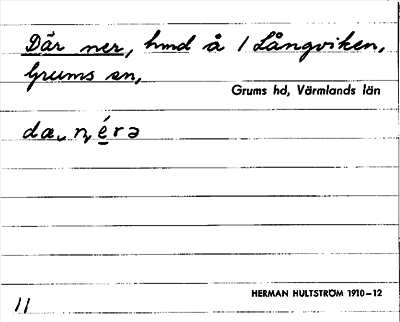 Där ner, hmd å / Långviken,
Grums sn,
Grums hd, Värmlands län
dæ, n, érə
HERMAN HULTSTRÖM 1910–12
11